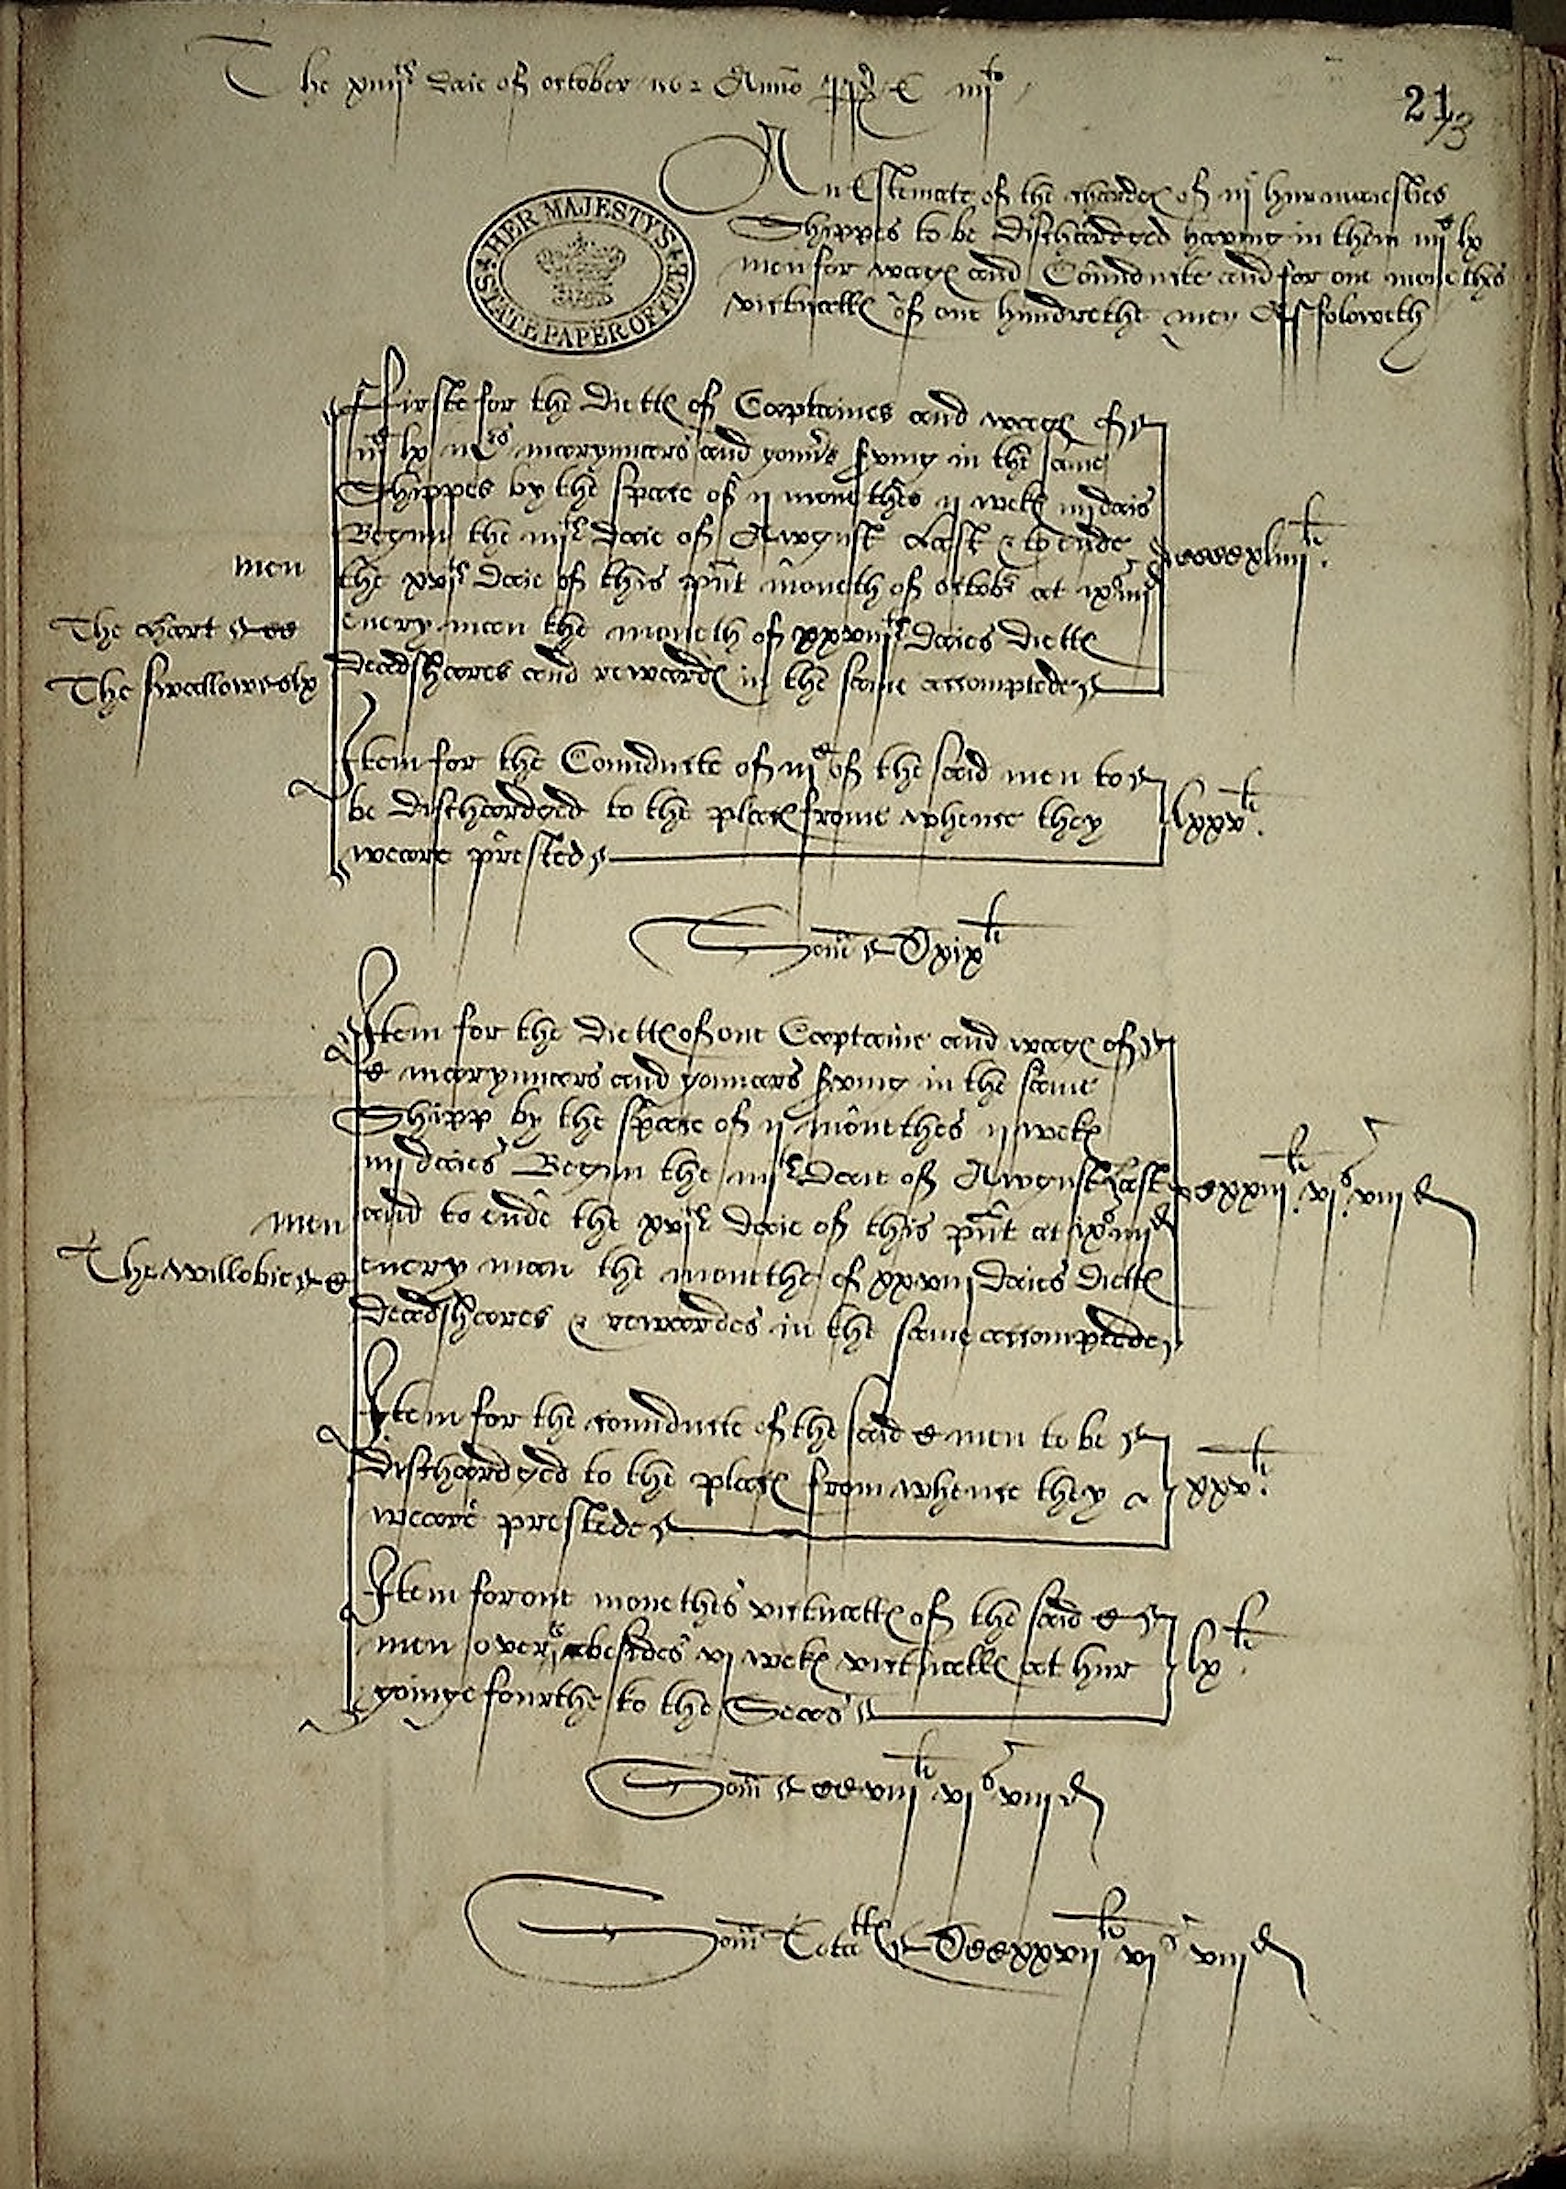 The xiiijth daie of october 1562 Anno RRe E iiijto
21
73
An Estemate of the chardges of iij hir maiesties
Shippes to be dischardged having in them iijC lx
men for wages and Conduicte and for one monethes
victualles of one hundrethe men As foloweth
HER MAJESTY'S STATE PAPER OFFICE
Firste for the dietts of Captaines and wages of
lx marynnars and gonnars sving in the same
Shippes by the space of ij monethes ij weks iij dais
Begun the iiijth daie of Awgust Last & to ende
the xvith daie of this pñt moneth of octobr at ixs iiijd
every man the moneth of xxviijth daies dietts
deadshares and rewards in the same accomptede
CCCCxliiijli.
men
The hart CC
The swallowe lx
Item for the Conduicte of iijC of the said men to
be dischardged to the places frome whence they
weare prested
lxxvli.
Som Dxixli
Item for the dietts of one Captaine and wages of
C marynnars and gonnars sving in the same
Shipp by the space of ij monethes ij weks
iij daies Begun the iiijth daie of Awgust Last
and to ende the xvith daie of this pñt at ixs iiijd
every man the monethe of xxviij daies dietts
deadshares & rewardes in the same accomptede
Cxxiijli. vis. viijd
men
The willobie C
Item for the conduicte of the said C men to be
dischardged to the places from whence they
weare prestede
xxvli.
Item for one monethes victualls of the said C
men over & besides vi weks victualls at hir
goinge fourthe to the Seas
lxli.
Som CCviijli vis viijd
Som Totalls DCCxxvijli vis viijd